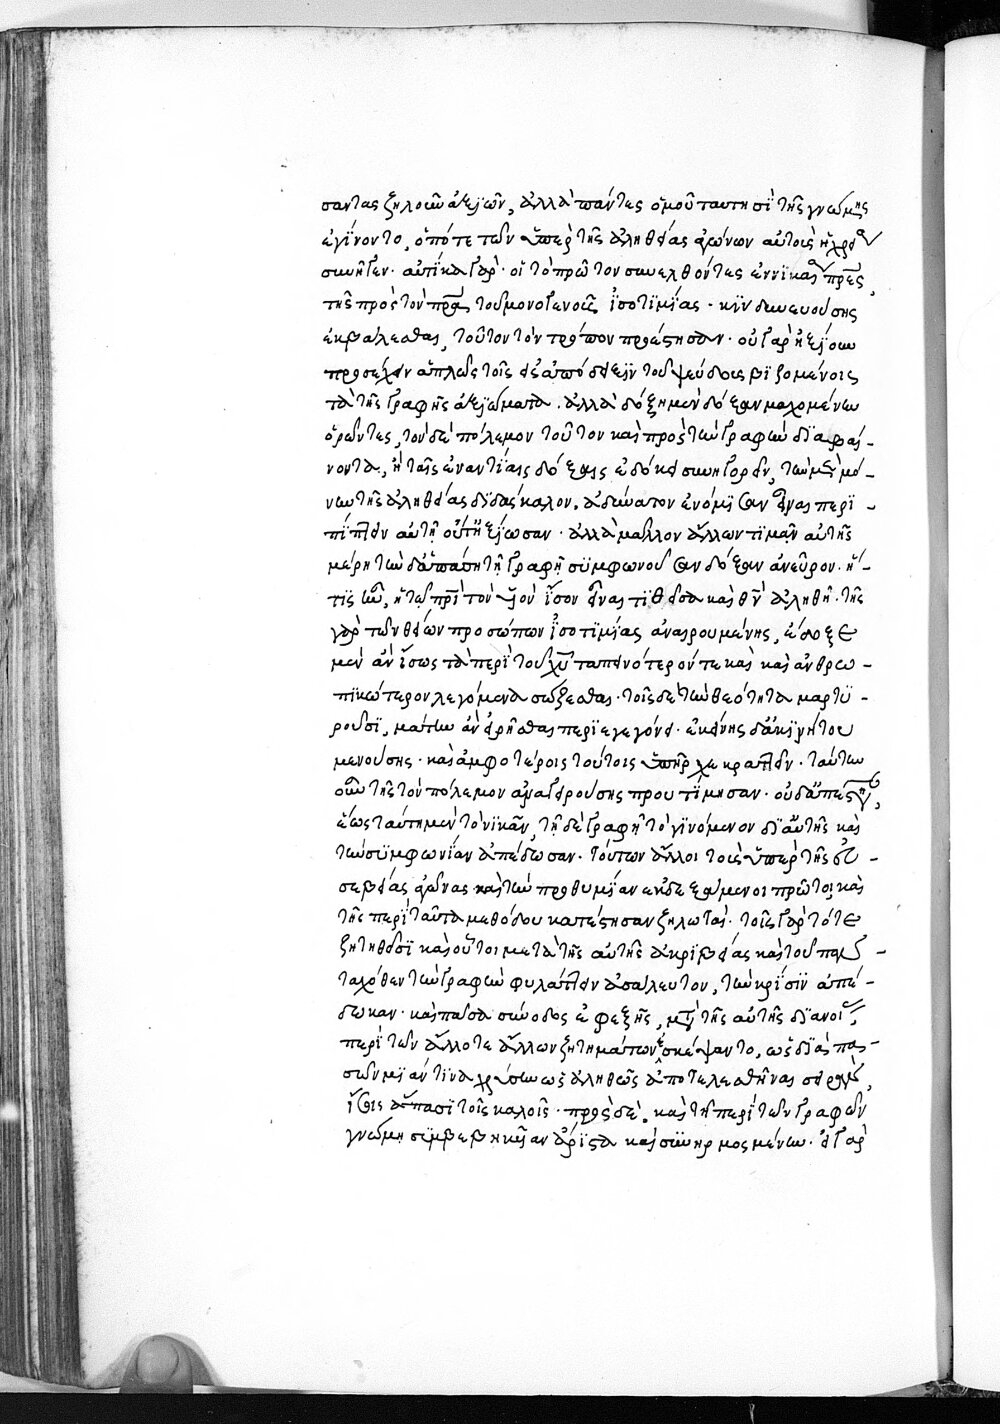 σαντας ζηλοῦν ἀξιῶν, ἀλλὰ πάντες ὁμοῦ ταυτησὶ τῆς γνώμης
ἐγίνοντο, ὁπότε τῶν ὑπὲρ τῆς ἀληθείας ἀγώνων αὐτοῖς
συνῆγεν· αὐτίκα γὰρ οἱ τὸ πρῶτον συνελθόντες ἐν νικαίᾳ πρες
τῆς πρὸς τὸν πρα τοῦ μονογενοῦς ἰσοτιμίας· κινδυνευούσης
ἐκβάλεσθαι, τοῦτον τὸν τρόπον προέστησαν· οὐ γὰρ ἠξίουν
προσέχειν ἁπλῶς τοῖς εἰς ἀπόδειξιν τοῦ ψεύδους βιζομένοις
τὰ τῆς γραφῆς ἀξιώματα. ἀλλὰ δόξῃ μὲν δόξαν μαχομένην
ὁρῶντες, τὸν δὲ πόλεμον τοῦτον καὶ πρὸς τὴν γραφὴν διαβαί-
νοντα, ἢ ταῖς ἐναντίαις δόξαις ἐδόκει συνηγορεῖν, τὴν μὲν μό-
νην τῆς ἀληθείας διδάσκαλον. ἀδύνατον ἐνόμισαν εἶναι περι-
πίπτειν αὑτῇ οὔτ' ἠξίωσαν· ἀλλὰ μᾶλλον ἄλλων τιμᾶν αὐτῆς
μέρη τὴν δ' ἁπάσῃ τῇ γραφῇ συμφωνοῦσαν δόξαν ἀνεῦρον· ἥ-
τις ἦν, ἡ τῷ πρὶ τὸν υἱὸν ἴσον εἶναι τιθεῖσα καὶ θν ἀληθῆ· τῆς
γὰρ τῶν θείων προσώπων ἰσοτιμίας ἀναιρουμένης, ἔδοξε
μὲν ἂν ἴσως τὰ περὶ τοῦ χυ ταπεινότερόν τε καὶ καὶ ἀνθρω-
πικώτερον λεγόμενα σώζεσθαι· τοῖς δὲ τὴν θεότητα μαρτυ-
ροῦσι, μάτην ἂν εἰρῆσθαι περιεγεγόνει· ἐκείνης δ' ἀκινήτου
μενούσης· καὶ ἀμφοτέροις τούτοις ὑπῆρχε κρατεῖν· ταύτην
οὖν τῆς τὸν πόλεμον ἀναγειρούσης προυτίμησαν· οὐδ' ἅπεστησαν,
ἕως ταύτῃ μὲν τὸ νικᾶν, τῇ δὲ γραφῇ τὸ γινόμενον δι' αὐτῆς καὶ
τὴν συμφωνίαν ἀπέδωσαν· τούτων ἄλλοι τοὺς ὑπὲρ τῆς εὐ-
σεβείας ἀγῶνας καὶ τὴν προθυμίαν ἐκδεξάμενοι πρῶτοι καὶ
τῆς περὶ ταῦτα μεθόδου κατέστησαν ζηλωταί· τοῖς γὰρ τότε
ζητηθεῖσι καὶ οὗτοι μετὰ τῆς αὐτῆς ἀκριβείας καὶ τοῦ παν-
ταχόθεν τὴν γραφὴν φυλάττειν ἀσάλευτον, τὴν κρίσιν ἀπέ-
δωκαν· καὶ πᾶσα σύνοδος ἐφεξῆς, μετὰ τῆς αὐτῆς διανοίας
περὶ τῶν ἄλλοτε ἄλλων ζητημάτων ἐσκέψαντο, ὡς διὰ πα-
σῶν μίαν τινὰ χρύσην ὡς ἀληθῶς ἀποτελεσθῆναι σειρὰν,
ἴσοις ἅπασι τοῖς καλοῖς· πρὸς δὲ. καὶ τῇ περὶ τῶν γραφῶν
γνώμῃ συμβεβηκυῖαν ἄριστα καὶ συνηρμοσμένην· εἰ γὰρ